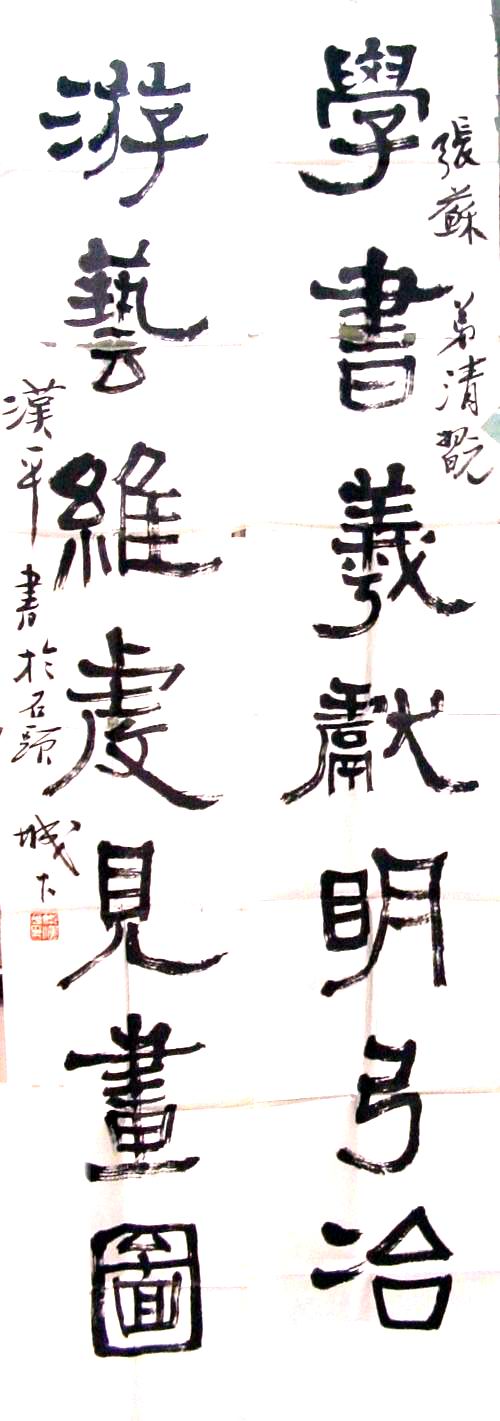 張蘇 弟清翫
學書羲獻明弓冶
游藝維虔見畫圖
漢平書於石頭城下